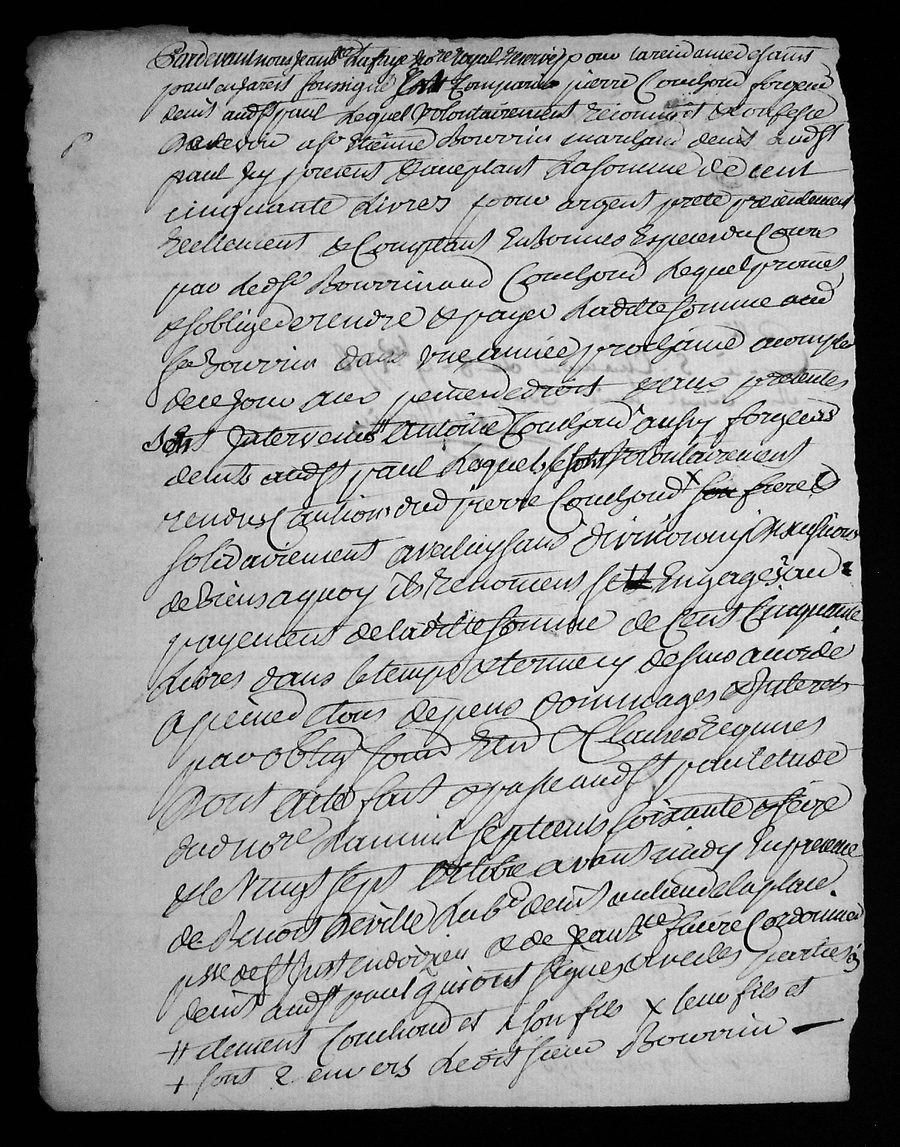 Pardevant nous Jean Bte Lafaye nore royal reservé pour la residance de saint
paul en Jarest soussigné comparu pierre Couchoud forgeur
demt audt st paul Lequel volontairement reconnoit & confesse
devoir a sr Etienne Bourrin marchand demt audt st
paul Icy present & acceptant La somme de cent
cinquante livres pour argent preté precedement
Reellement & Comptant En bonnes Especes du Cours
par Ledt sr Bourrin aud Couchoud Lequel promet
& s'oblige de rendre & payer Laditte somme aud
sr Bourrin dans une année prochaine a compter
de ce jour aux peines de droit a ces presentes
sont Intervenus Antoine Couchoud aussy forgeur
demts audt st paul Lequels se sont volontairement
rendus Cautions dud pierre Couchoud x son frere &
solidairement avec luy sans division ny discussion
de biens a quoy ils renoncent se Engages au
payement de laditte somme de Cent Cinquante
Livres dans le temps & terme cy dessus accordé
a peine de tous depens dommages & Interets
par oblig soum Ren & Clauses requises
Dont Acte fait & passé audt st paul etude
dud nore L'an mil sept cents soixante & seize
& le vingt sept octobre avant midy En presence
de Benoit Deville Labr demt au lieu de la place
psse de st Just en doizieu & de Jean Bte faure Cordonnier
demt audt st paul qui ont signés avec les parties
++ clement Couchoud et son fils x leur fils et
+ sont 2 envers Ledit sieur Bourrin